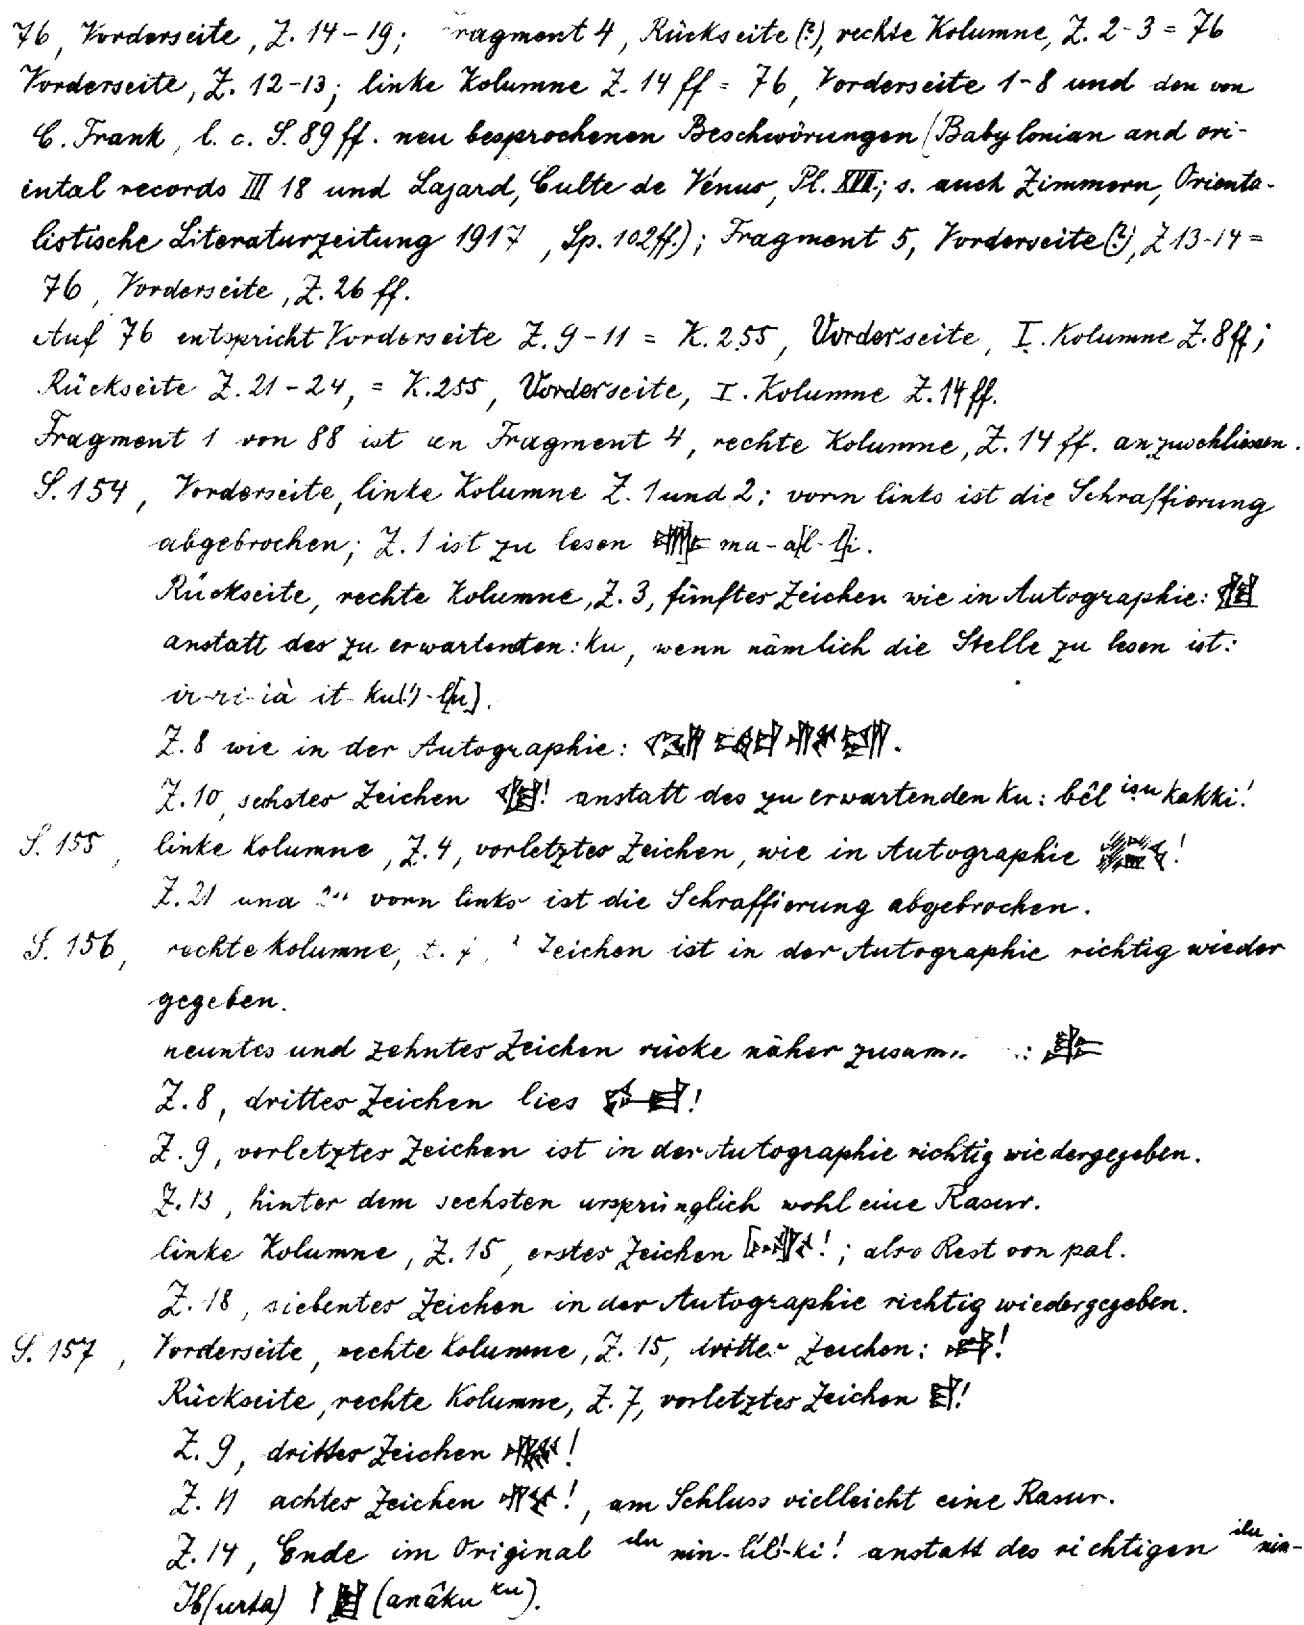 76, Vorderseite, Z. 14-19; Fragment 4, Rückseite (?), rechte Kolumne, Z. 2-3 = 76
Vorderseite, Z. 12-13; linke Kolumne Z. 14 ff = 76, Vorderseite 1-8 und den von
C. Frank, l. c. S. 89 ff. neu besprochenen Beschwörungen (Babylonian and ori-
ental records III 18 und Lajard, Culte de Vénus, Pl. XVII; s. auch Zimmern, Orienta-
listische Literaturzeitung 1917, Sp. 102ff.); Fragment 5, Vorderseite (?), Z 13-14 =
76, Vorderseite, Z. 26 ff.
Auf 76 entspricht Vorderseite Z. 9-11 = K. 255, Vorderseite, I. Kolumne Z. 8 ff;
Rückseite Z. 21-24, = K. 255, Vorderseite, I. Kolumne Z. 14 ff.
Fragment 1 von 88 ist an Fragment 4, rechte Kolumne, Z. 14 ff. anzuschliessen.
S. 154, Vorderseite, linke Kolumne Z. 1 und 2; vorn links ist die Schraffierung
abgebrochen; Z. 1 ist zu lesen ma-a[l-l]i.
Rückseite, rechte Kolumne, Z. 3, fünftes Zeichen wie in Autographie:
anstatt des zu erwartenden: ku, wenn nämlich die Stelle zu lesen ist:
ir-ri-ià it-ku(!)-l[u].
Z. 8 wie in der Autographie:
Z. 10, sechstes Zeichen ! anstatt des zu erwartenden ku: bêl iṣu kakki!
S. 155, linke Kolumne, Z. 4, vorletztes Zeichen, wie in Autographie !
Z. 21 und vorn links ist die Schraffierung abgebrochen.
S. 156, rechte Kolumne, Zeichen ist in der Autographie richtig wieder
gegeben.
neuntes und zehntes Zeichen rücke näher
Z. 8, drittes Zeichen lies !
Z. 9, vorletztes Zeichen ist in der Autographie richtig wiedergegeben.
Z. 13, hinter dem sechsten ursprünglich wohl eine Rasur.
linke Kolumne, Z. 15, erstes Zeichen !; also Rest von pal.
Z. 18, siebentes Zeichen in der Autographie richtig wiedergegeben.
S. 157, Vorderseite, rechte Kolumne, Z. 15, drittes Zeichen: !
Rückseite, rechte Kolumne, Z. 7, vorletztes Zeichen !
Z. 9, drittes Zeichen !
Z. 11 achtes Zeichen !, am Schluss vielleicht eine Rasur.
Z. 14, Ende im Original ilu nin-lil!-ki! anstatt des richtigen ilu nin-
Ib(urta) (anâku ku).